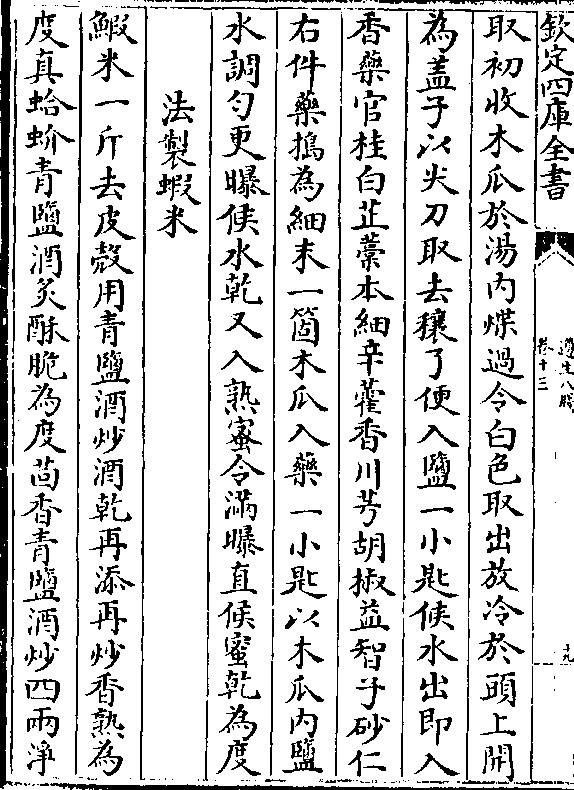 欽定四庫全書
遵生八牋
卷十三
十九
取初收木瓜於湯内煠過令白色取出放冷於頭上開
為盖子以尖刀取去穰了便入鹽一小匙候水出即入
香藥官桂白芷藁本細辛藿香川芎胡椒益智子砂仁
右件藥搗為細末一箇木瓜入藥一小匙以木瓜内鹽
水調勻更曝候水乾又入熟蜜令滿曝直候蜜乾為度
法製蝦米
鰕米一斤去皮殼用青鹽酒炒酒乾再添再炒香熟為
度真蛤蚧青鹽酒炙酥脆為度茴香青鹽酒炒四兩淨